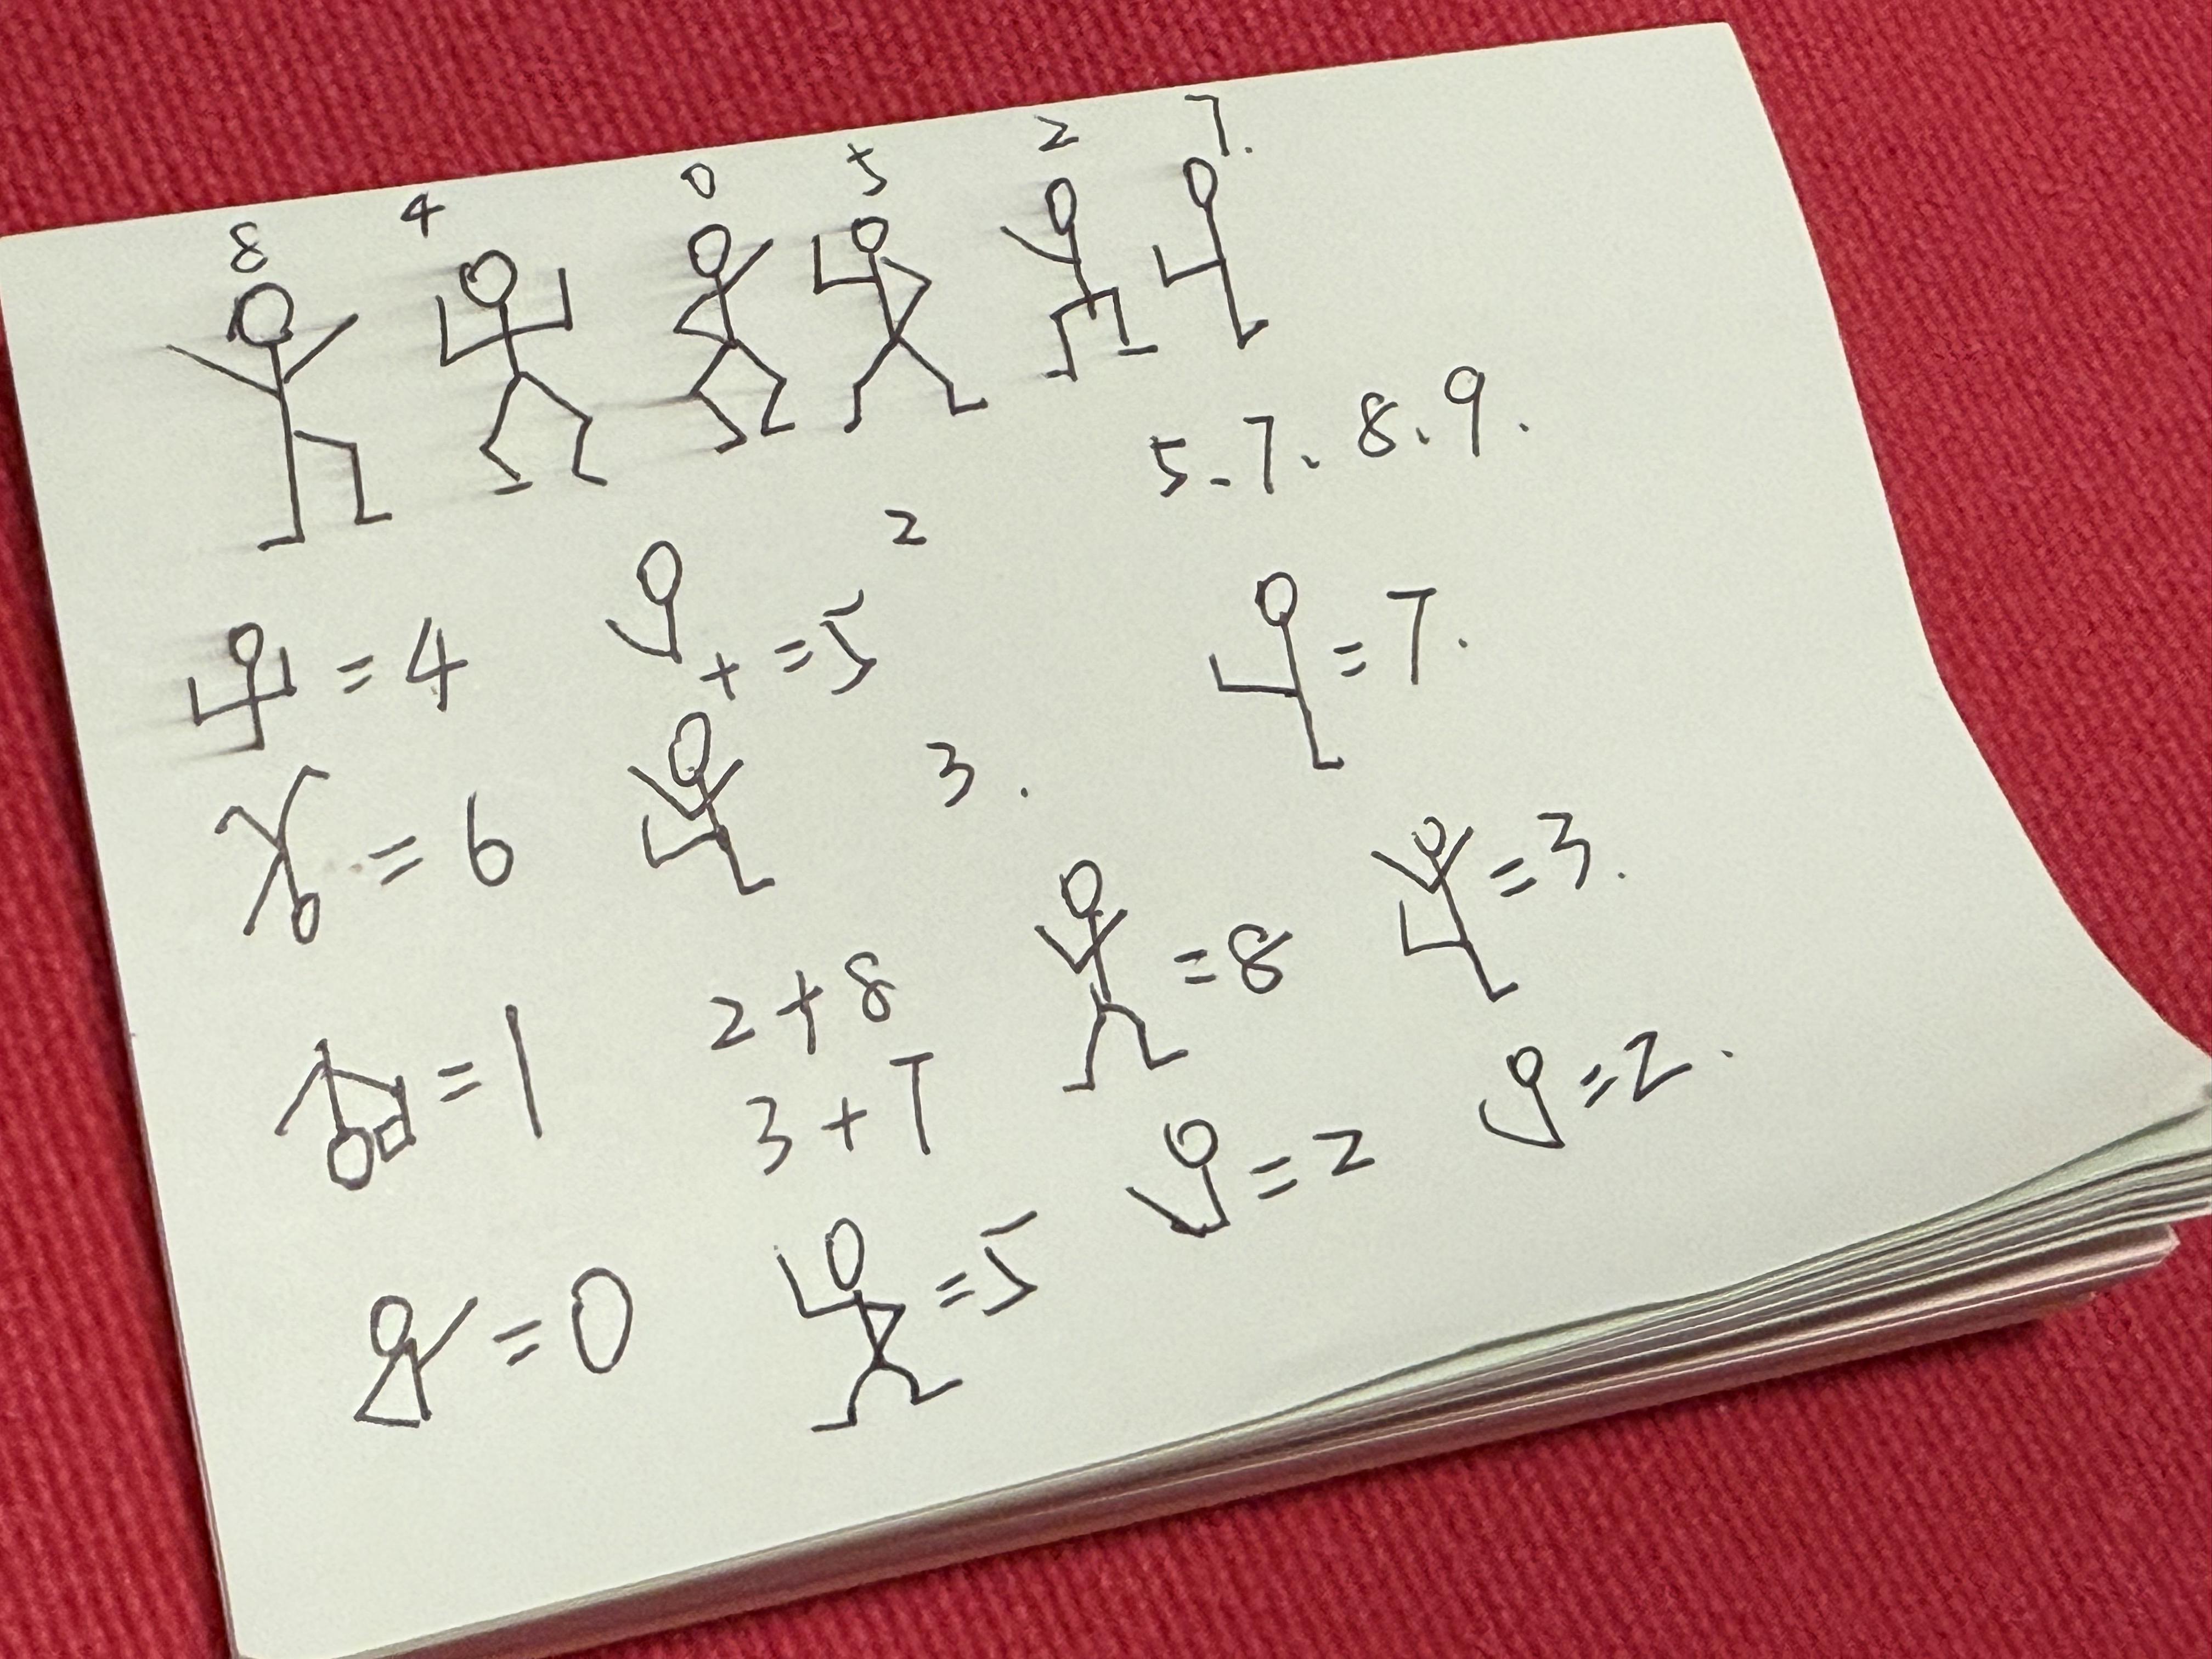 8 4 0 5 2 7.
5.7.8.9.
2
=4
+ =5
=7.
=6
3.
=8
=3.
=1
2+8
3+7
=2
=2.
=0
=5